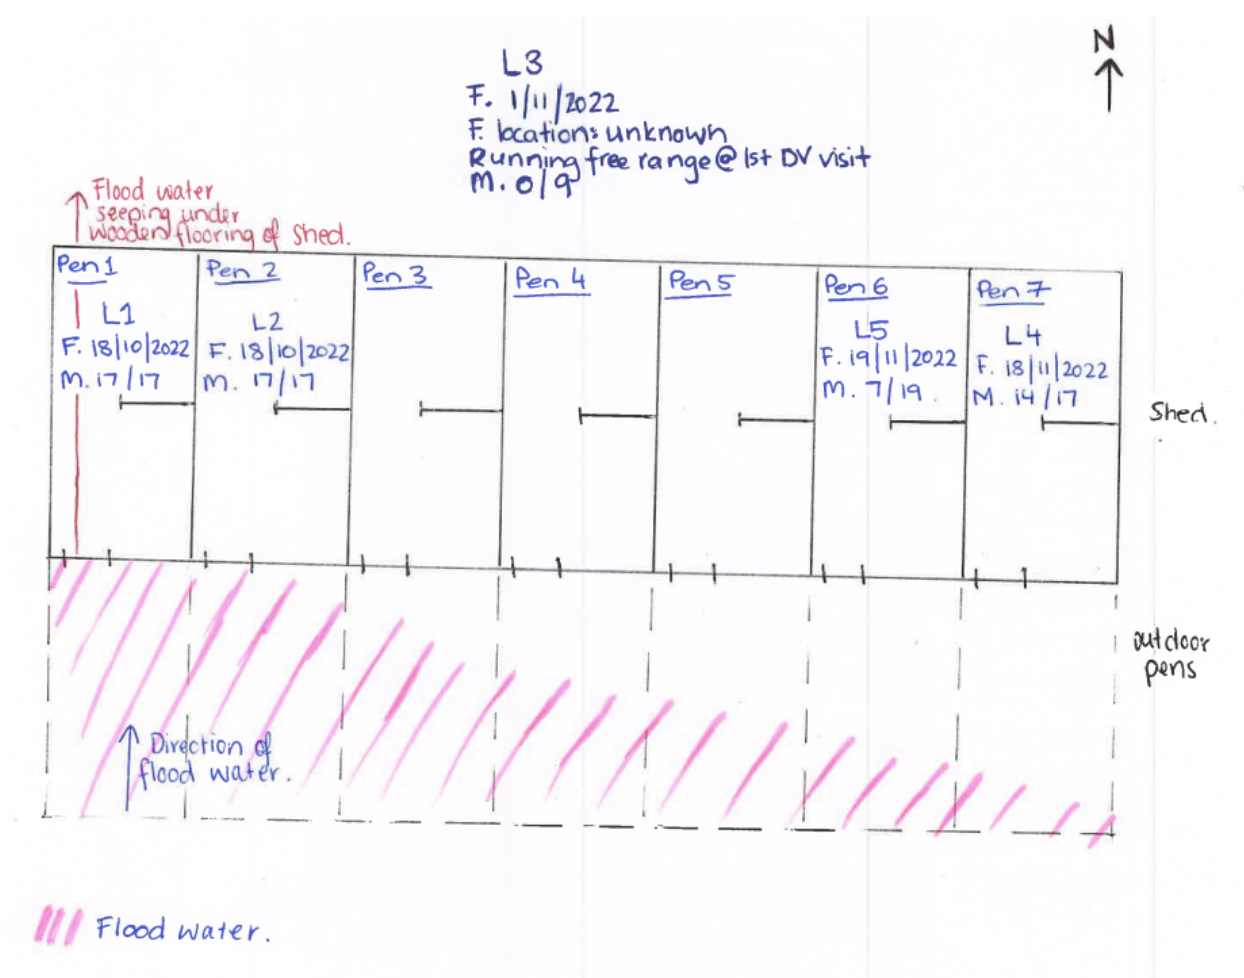 N
L3
F. 1/11/2022
F. location: unknown
Running free range @ 1st DV visit
M. 0/9
Flood water
seeping under
wooden flooring of shed.
Pen 1
L1
F. 18/10/2022
M. 17/17
Pen 2
L2
F. 18/10/2022
M. 17/17
Pen 3
Pen 4
Pen 5
Pen 6
L5
F. 19/11/2022
M. 7/19.
Pen 7
L4
F. 18/11/2022
M. 14/17
Shed.
outdoor
pens
Direction of
flood water.
Flood water.